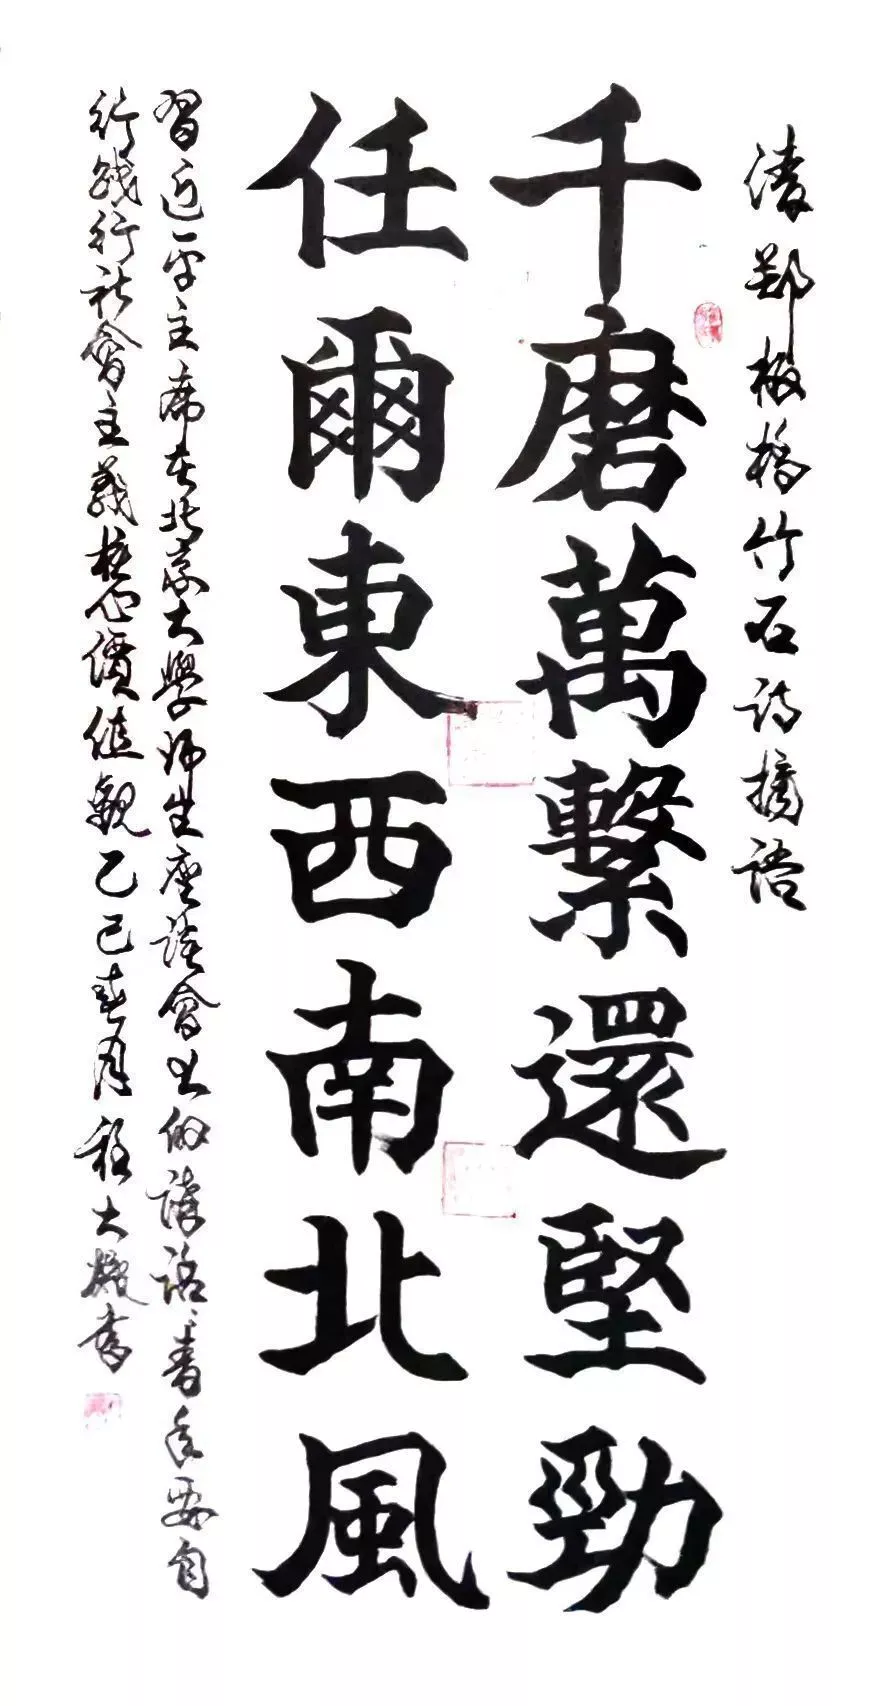 清鄭板橋竹石詩摘語
千磨萬繫還堅勁
任爾東西南北風
習近平主席在北京大學師生座談會上講話：青年要自
行踐行社會主義核心價值觀乙巳春月程大書